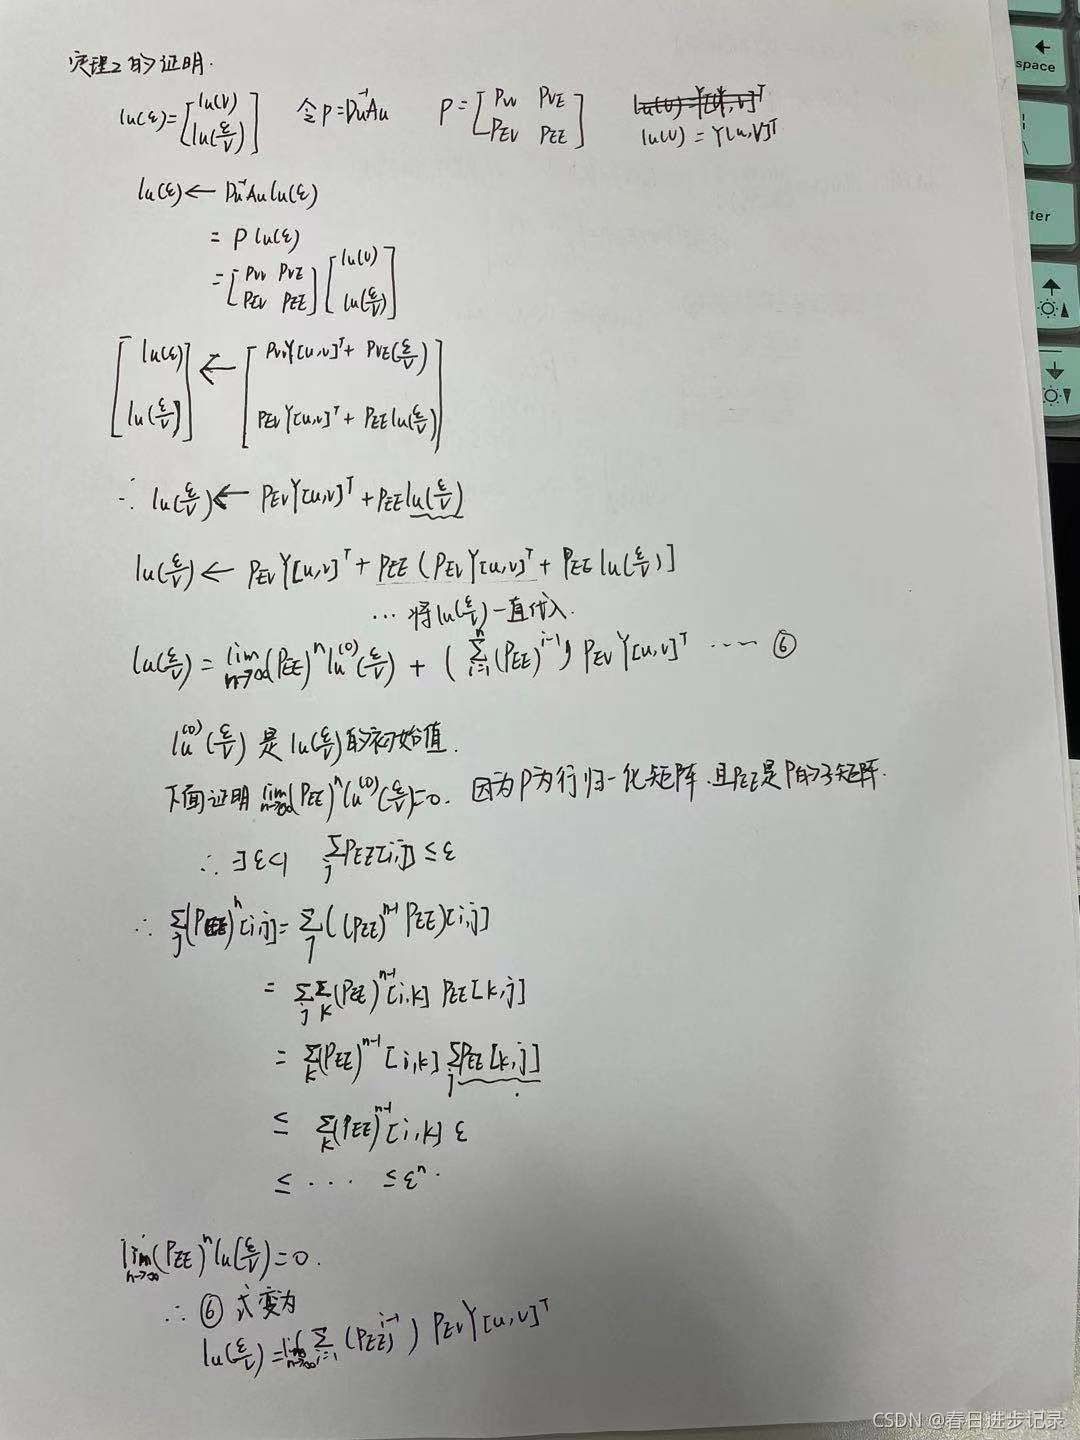 定理2的证明.
lu(ε)=[lu(V) lu(ε/V)] 令P=Du⁻¹Au P=[PVV PVE PEV PEE] lu(V)=Y[u,V]ᵀ
lu(ε)← Du⁻¹Au lu(ε)
= P lu(ε)
=[PVV PVE PEV PEE][lu(V) lu(ε/V)]
[lu(ε) lu(ε/V)] ← [PVVY[u,v]ᵀ+ PVE(ε/V) PEVY[u,v]ᵀ+ PEElu(ε/V)]
∴ lu(ε/V)← PEVY[u,v]ᵀ+PEElu(ε/V)
lu(ε/V)← PEVY[u,v]ᵀ+ PEE(PEVY[u,v]ᵀ+ PEElu(ε/V)]
... 将lu(ε/V)一直代入.
lu(ε/V)= lim n→∞(PEE)ⁿlu⁽⁰⁾(ε/V) + (Σi=1ⁿ(PEE)ⁱ⁻¹) PEVY[u,v]ᵀ ····· ⑥
lu⁽⁰⁾(ε/V)是lu(ε/V)的初始值.
下面证明lim n→∞(PEE)ⁿlu⁽⁰⁾(ε/V)=0. 因为P为行归一化矩阵.且PEE是P的子矩阵.
∴ ∃ε<1 ΣjPEE[i,j]≤ε
∴ Σj(PEE)ⁿ[i,j]=Σj((PEE)ⁿ⁻¹PEE)[i,j]
= ΣjΣk(PEE)ⁿ⁻¹[i,k] PEE[k,j]
= Σk(PEE)ⁿ⁻¹[i,k]ΣjPEE[k,j]
≤ Σk(PEE)ⁿ⁻¹[i,k] ε
≤ ... ≤εⁿ.
lim n→∞(PEE)ⁿlu(ε/V)=0.
∴ ⑥ 式变为
lu(ε/V)=lim n→∞Σi=1(PEE)ⁱ⁻¹) PEVY[u,v]ᵀ
←
space
\
ter
CSDN @春日进步记录